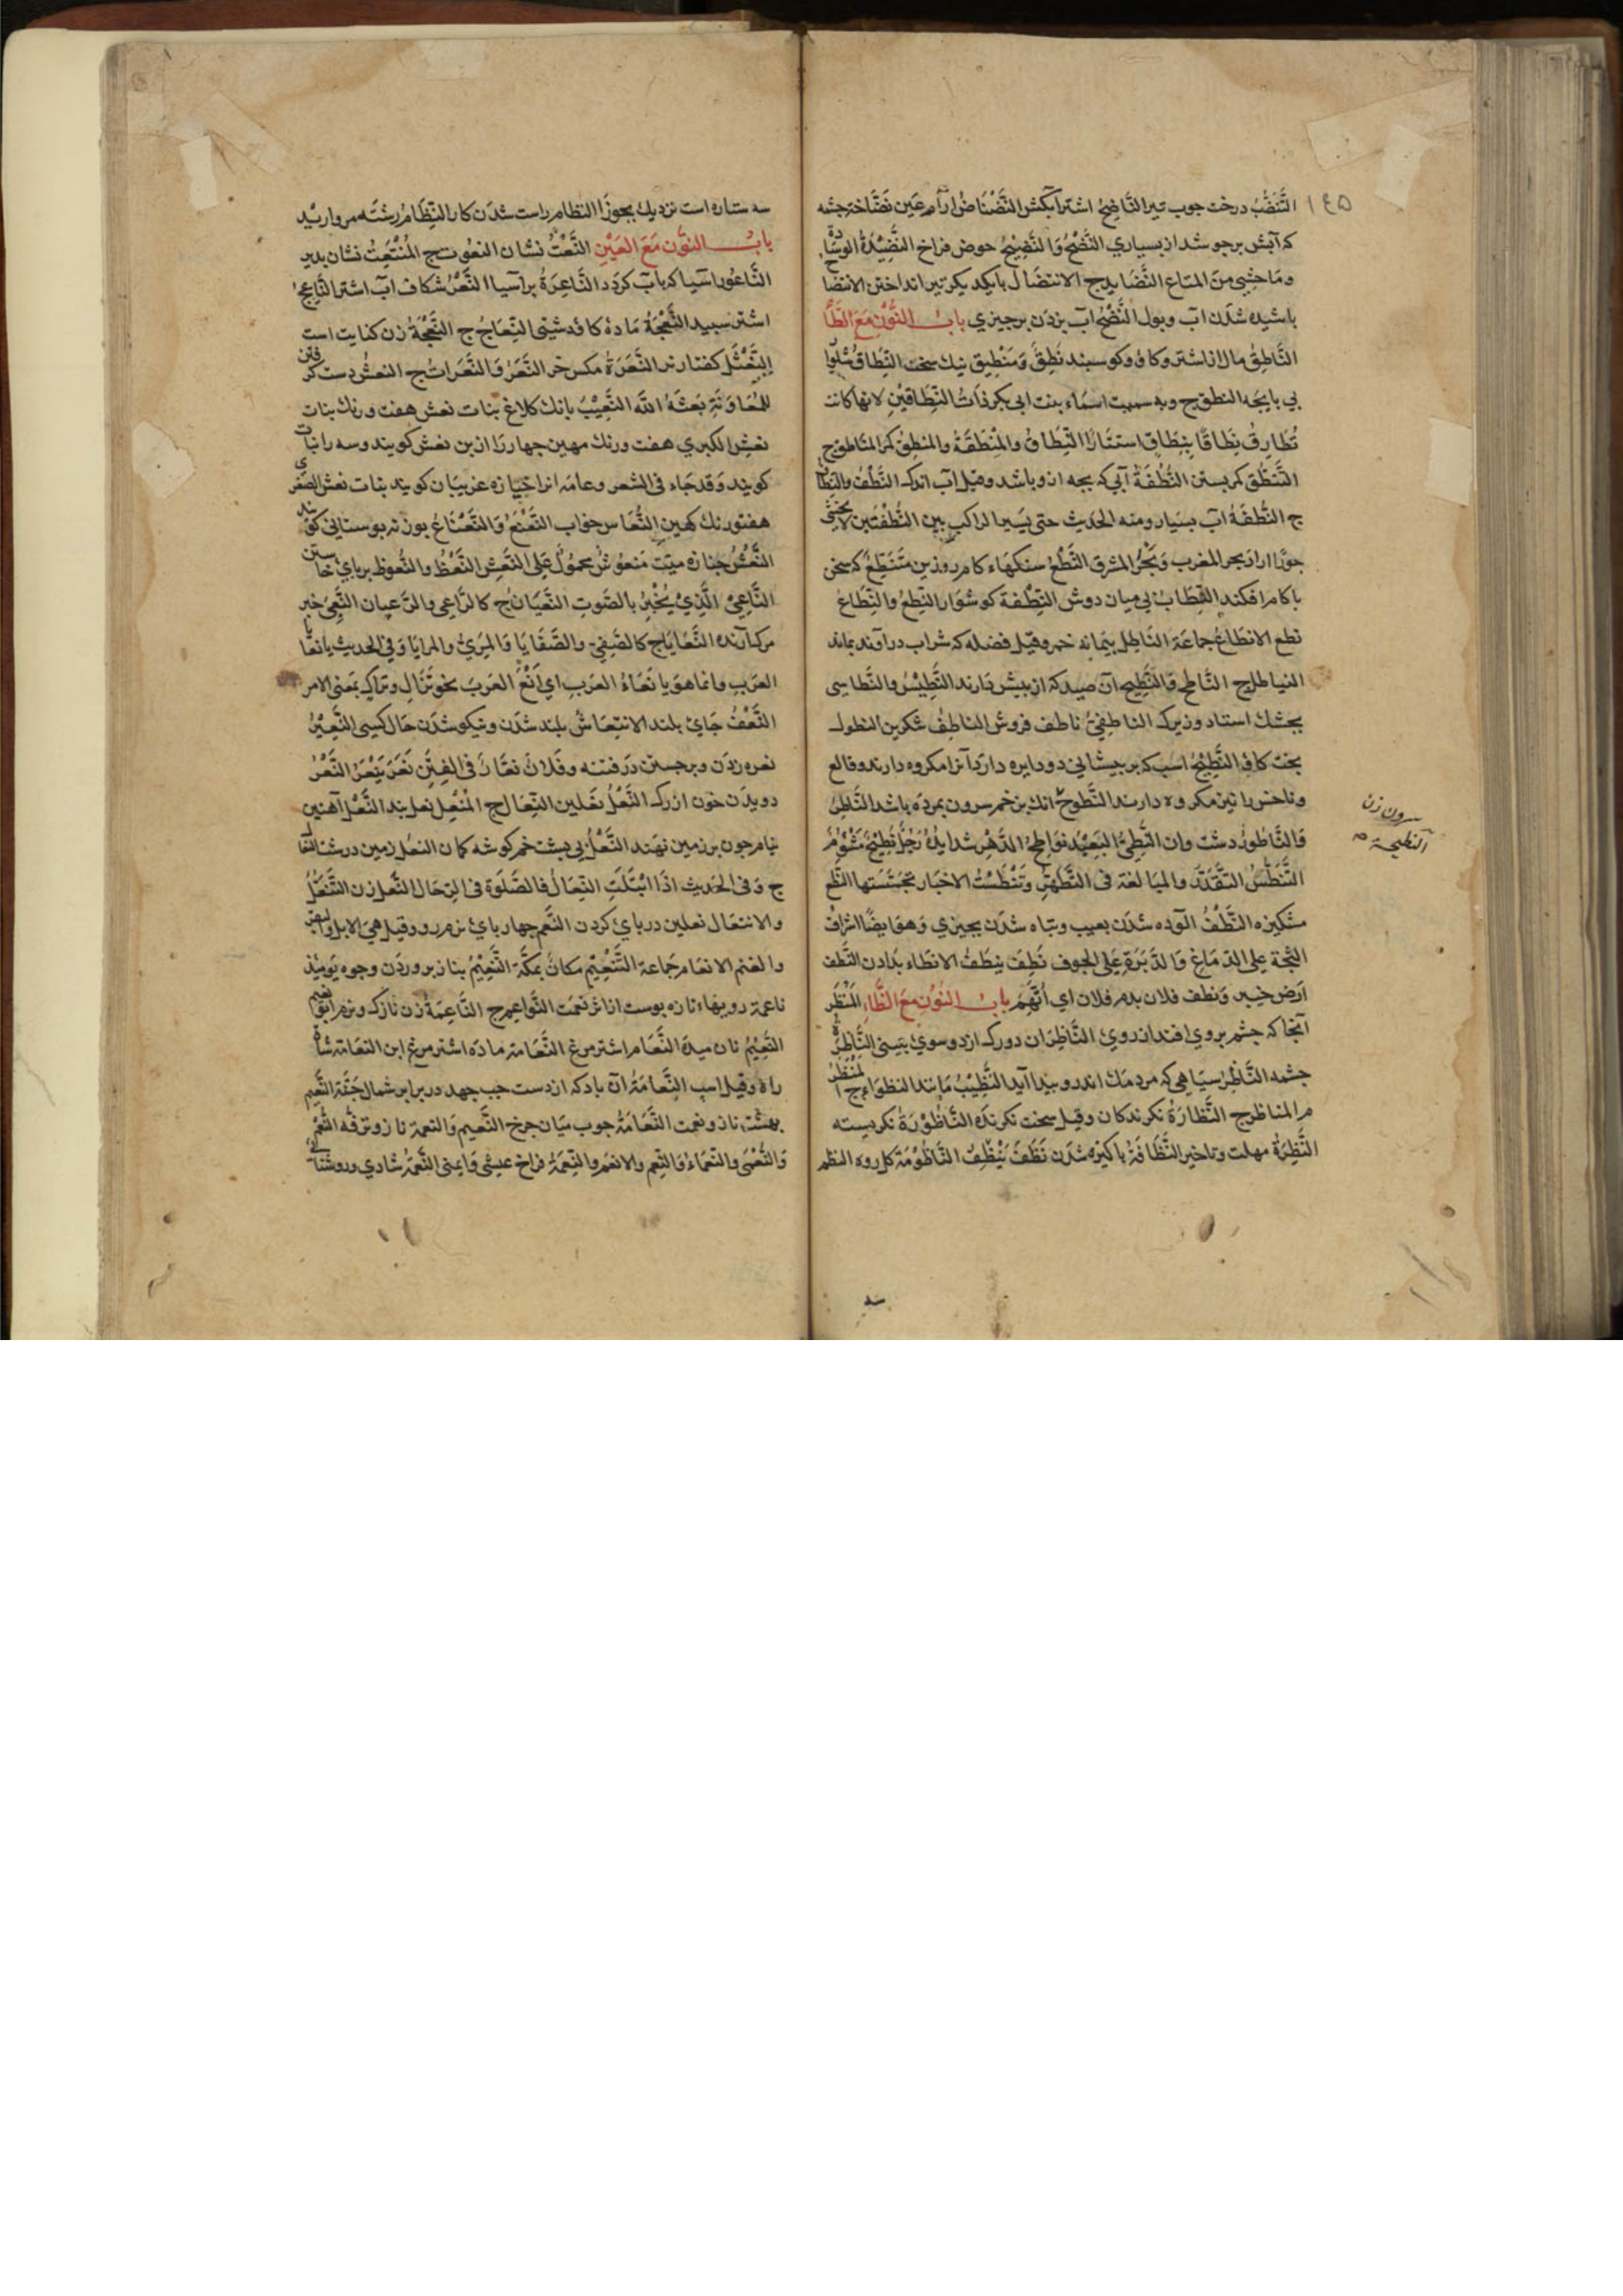 التَّنْضُبُ درخت جوب تير النَّاضِحُ اشتر آبكش النَّضْنَاضُ مار عَين نَضَّاخة جشمه
كه آبش برجوشد از بسياري النَّضْحُ وَالنَّضِيْحُ حوض فراخ النَّضِيْدَةُ الوِسَادة
ومَا حُشِي مِنَ المتَاع النَّضَايدج الانتضَال بايكديكر تير انداختن الانتضا
باشيده شدن آب وبول النَّضْحُ آب بزدن برجيزي بابُ النُّوْنِ مَعَ الطَّا
النَّاطِقُ مال از اشتر وكاو وكوسبند نُطِقَ وَمَنْطِيق نيك سخن النِّطَاقُ شلوار
بي بايجه النطق ج وبه سميت اسمَاء بنت ابي بكر ذَاتُ النِّطَاقَيْنِ لانها كانت
تُطَارِقُ نِطَاقًا بِنِطَاقٍ استتارًا النِّطَاقُ والمِنْطَقَةُ والمنطِقُ كمر المنَاطِق ج
التَّنَطُّق كمر بستن النُّطْفَةُ آبي كه بجه ازو باشد وقيل آب اندك النُّطَفُ والنِّطَافُ
ج النُّطْفَةُ آب بسيار ومنه الحديث حتى يَسِيرَ الراكب بين النُّطْفَتَين لا يخشى
جورًا اراد بحر المغرب وَبَحْرُ المشرق النِّطَعُ سنكهاء كام روزين مُتَنَطِّعٌ كه سخن
باكام افكند النِّطَابُ بي ميان دوش النِّطْفَة كوشوار النِّطَعُ والنِّطَاعُ
نطع الانطَاعُ جماعَة النَّاطِل بيمانه خمر وقيل فضله كه شراب درآوند بماند
النياطل ج النَّاطح وَالنَّطِيح آن صيد كه از بيش دارند النِّطِيْسُ والنِّطَاسِي
بجشك استاد وزيرك الناطِفِيُّ ناطف فروش الناطِفُ شكرين النطول
بخت كاو النَّطِيْحُ اسب كه بر بيشاني دو دايره دارد آنرا مكروه دارند وقالع
وناخس را نيز مكروه دارند النَّطُوحُ انك بزخم سرون بمرده باشد النَّاطِرُ
وَالنَّاطُورُ دشت وان النَّطِيُّ البَعِيْدُ نَوَاطِحُ الدَّهْرِ شدايدُهُ رَجُلٌ نَطِيْحٌ مَشْؤُمٌ
التَّنَطُّسُ التقذّر والمبَالغة فى التَّطَهُّرِ وَتَنَطَّسْتُ الاخبَار تجَسَّسْتها النَّطَع
مشكيزه النَّطَفُ آلوده شدن بعيب وتباه شدن بجيزي وَهوَ ايضًا اشرافُ
الشجّة على الدّمَاغ وَالدَّبَرَةِ عَلَى الجوف نَطِفَ يَنْطَفُ الانطاء بدادن النَّطَف
اَرض خيبر وَنطف فلان بدم فلان اي اُتُّهِمَ بابُ النُّوْنِ مَعَ الظَّاءِ المَنْظَر
آنجا كه جشم بروي افتد از روي النَّاظِرَان دورك از دوسوي بيني النَّاظِرَةُ
جشمه النَّاظِرُ سيَاهي كه مردمك اندرو بيدا آيد النَّظِيْرُ مَانند النظراء ج المَنْظَرُ
م المناظر ج النَّظَّارَةُ نكرندكان وقيل سخت نكرنده النَّاظُوْرَةُ نكريسته
النَّظِرَةُ مهلت وتاخير النَّظَافَةُ باكيزه شدن نَظُفَ يَنْظُفُ النَّاظُوْمَة كل روه النظم
سرون زن
النطيحة ص
سه ستاره است نزديك بجوزا النظام راست شدن كار النِّظَامُ رشته مرواريد
بابُ النوُّن مَعَ العَيْنِ النَّعْتُ نشان النعُوت ج المُنْتَعِتُ نشان بديد
النَّاعُور اسيا كه بآب كردد النَّاعِرَةُ برآسيا النَّعْرُ شكاف آب اشتر النَّاعِجُ
اشتر سبيد النَّعْجَةُ مَادهُ كاو دشتى النِّعَاجُ ج النَّعْجَةُ زن كنايت است
النَّعْثَل كفتار نر النُّعَرَةُ مكس خر النُّعَرُ وَالنُّعَرَاتُ ج النعشُ دست كرفتن
للمُعَاوَنَةِ نَعَشَهُ الله النَّعِيْبُ بانك كلاغ بنات نعش هفت ورنك بنات
نعش الكبري هفت ورنك مهين جهار را ازين نعش كويند وسه رابنات
كويند وَقد جَاء فى الشعر وعامه انرا خيازه عزبيان كويند بنات نعش الصغرى
هفتورنك كهين النُّعَاس خواب النَّعْنَعُ وَالنَّعْنَاعُ بوزنه بوستاني كويند
النَّعْشُ جنازه ميّت مَنعُوشٌ محمُولٌ عَلى النَّعْشِ النَّعْظُ والنُّعُوظ برباي خاستن
النَّاعِيُ الَّذِيْ يُخْبِرُ بالصَّوتِ النُّعْيَانُ ج كالرَّاعِي والرُّعيان النَّعِيُّ خبر
مرك آرنده النَّعَايَا ج كالصَّفِيّ والصَّفَايَا وَالمَرِيُّ والمرَايَا وَفى الحَديث يا نعَايَا
العَرَبِ وانما هوَ يَا نَعَاءِ العَرَبِ اي اِنْعَ العَرَبَ نحو نَزَالِ وتَرَاكِ بمعنى الامر
النَّعْفُ جَاي بلند الانتِعَاشُ بلند شدن ونيكو شدن حَال كسى النَّعِيْرُ
نعره زدن وبرجستن در فتنه وفلان نعَّارٌ في الفِتَنِ نَعَرَ يَنْعَرُ النَّعْرُ
دويدن خون از رك النَّعْلُ نعلين النِّعَال ج المُنْعِل نعل بند النَّعْل آهنين
نيام جون برزمين نهند النَّعْلُ بي بشت خم كوشه كمان النعل زمين درشت النعَال
ج وَفى الحَديث اذَا ابْتَلَّتِ النِّعَالُ فالصَّلَوة في الرِحَال النَّعل زن التَّنَعُّلُ
والانتعَال نعلين درباي كردن النَّعَم جهارباي نرم رو وقيل هِيَ الابل والبقر
والغنم الانعام جَمَاعة التَّنْعِيْم مكَانُ بمكّة النَّعِيْمُ بناز بروردن وجوه يومئذ
ناعمة رويهاء تازه بوست از اثر نعمت النَّوَاعِم ج النَّاعِمَةُ زن نازك ونرم
النَّعِيْمُ نان ميده النَّعَام اشتر مرغ النَّعَامة ماده اشتر مرغ ابن النعَامَة شاه
راه وقيل اسب النُّعَامَةُ آن باد كه از دست جب جهد دربرابر شمال جَنَّة النَّعِيم
بهشت ناز ونعمت النَّعَامَةُ جوب ميَان جرخ النَّعِيم وَالنعمة ناز وترفّه النُّعْمُ
وَالنُّعْمَى والنَّعْمَاءُ وَالنِّعم والانعُم والنِّعْمَةُ فراخ عيشى وَايمنى النِّعْمَةُ شادي وروشنَائي